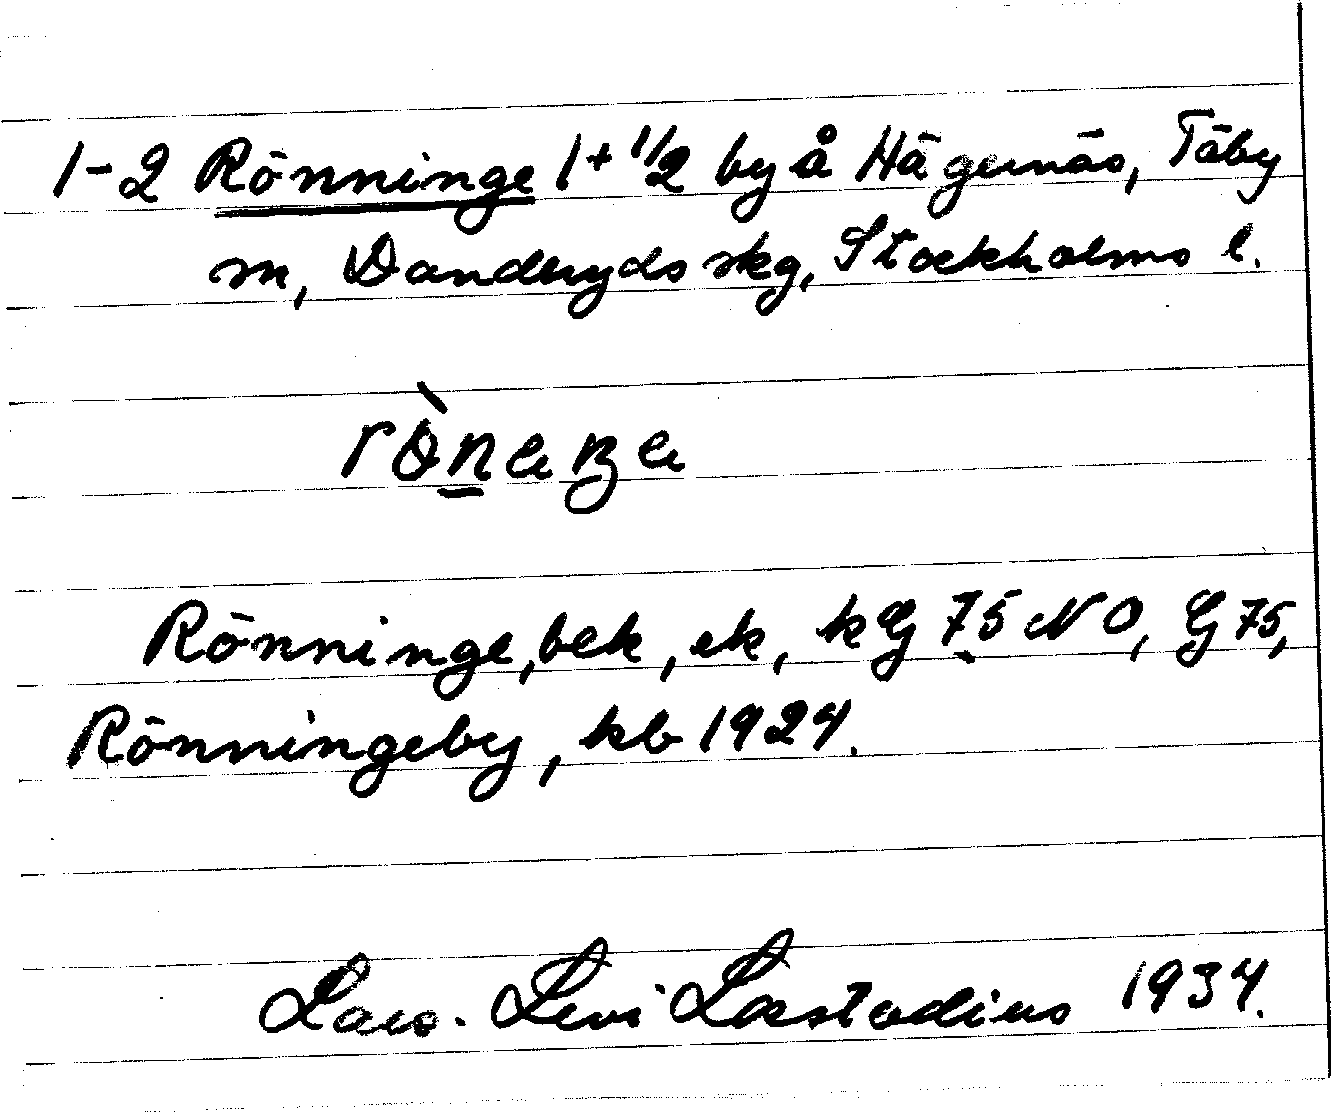 1-2 Rönninge 1+1/2 by å Hägernäs, Täby
sn, Danderyds skg, Stockholms l.
Rönninge, bek, ek, kG 75 NO, G 75,
Rönningeby, kb 1924.
Lars-Levi Læstadius 1934.